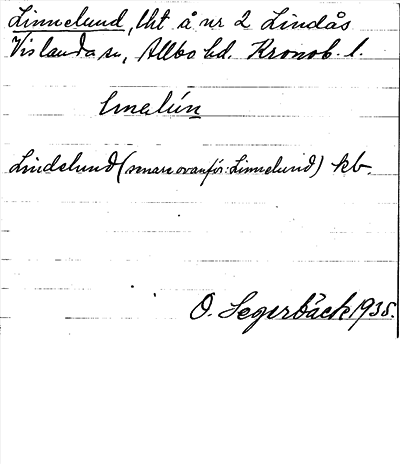 Linnelund, lht å nr 2 Lindås
Vislanda sn, Allbo hd. Kronob. l.
linelún
Lindelund (senare ovanför: Linnelund) kb.
O. Segerbäck 1935.